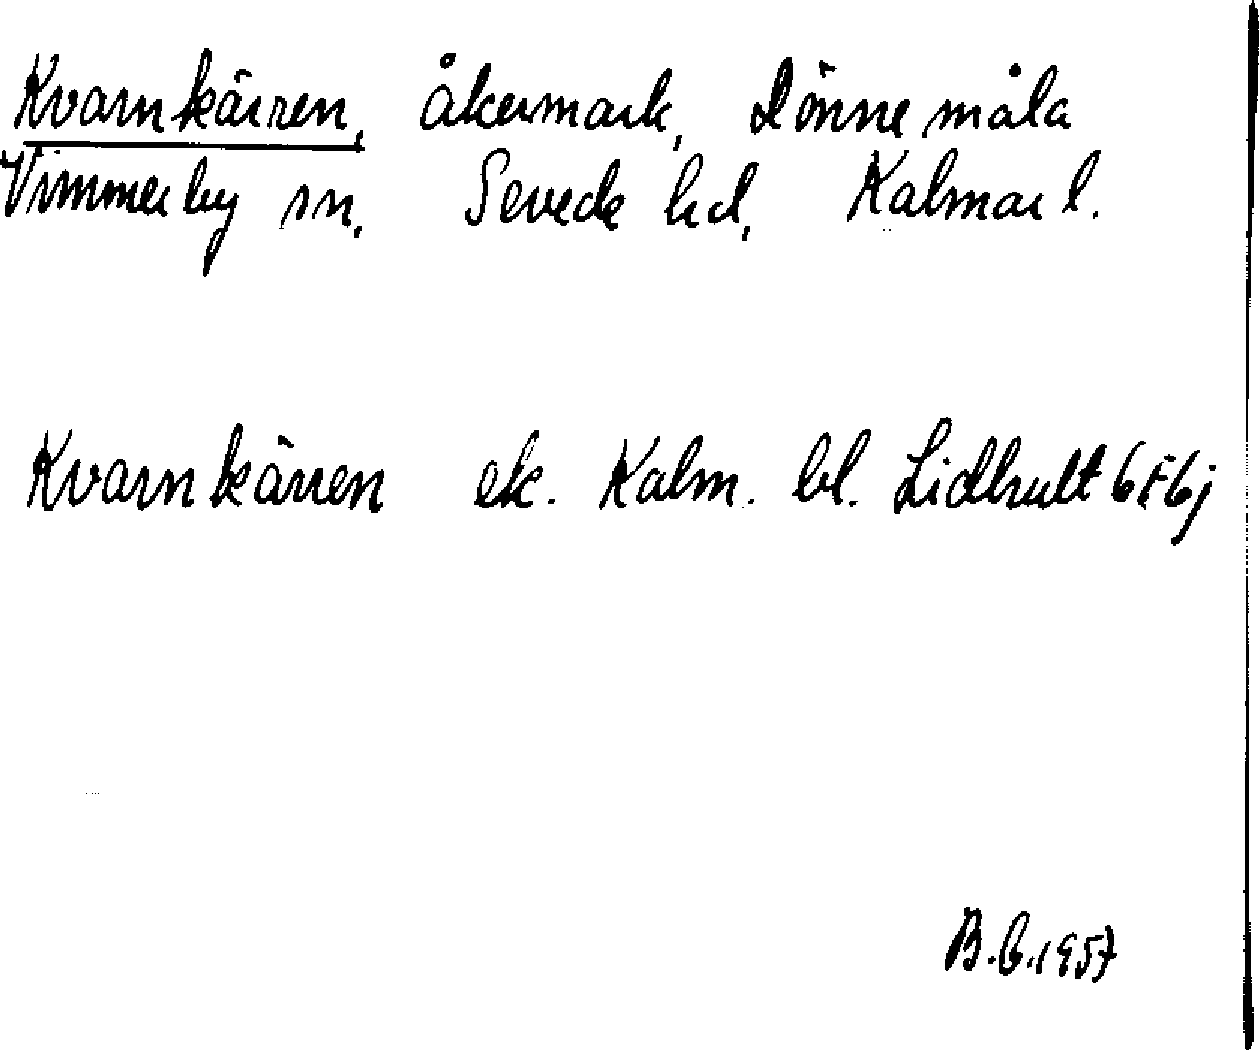 Kvarnkärren, åkermark, Lönnemåla
Vimmerby sn, Sevede hd, Kalmar l.
Kvarnkärren ek. Kalm. bl. Lidhult 6f6j
B.G.1957